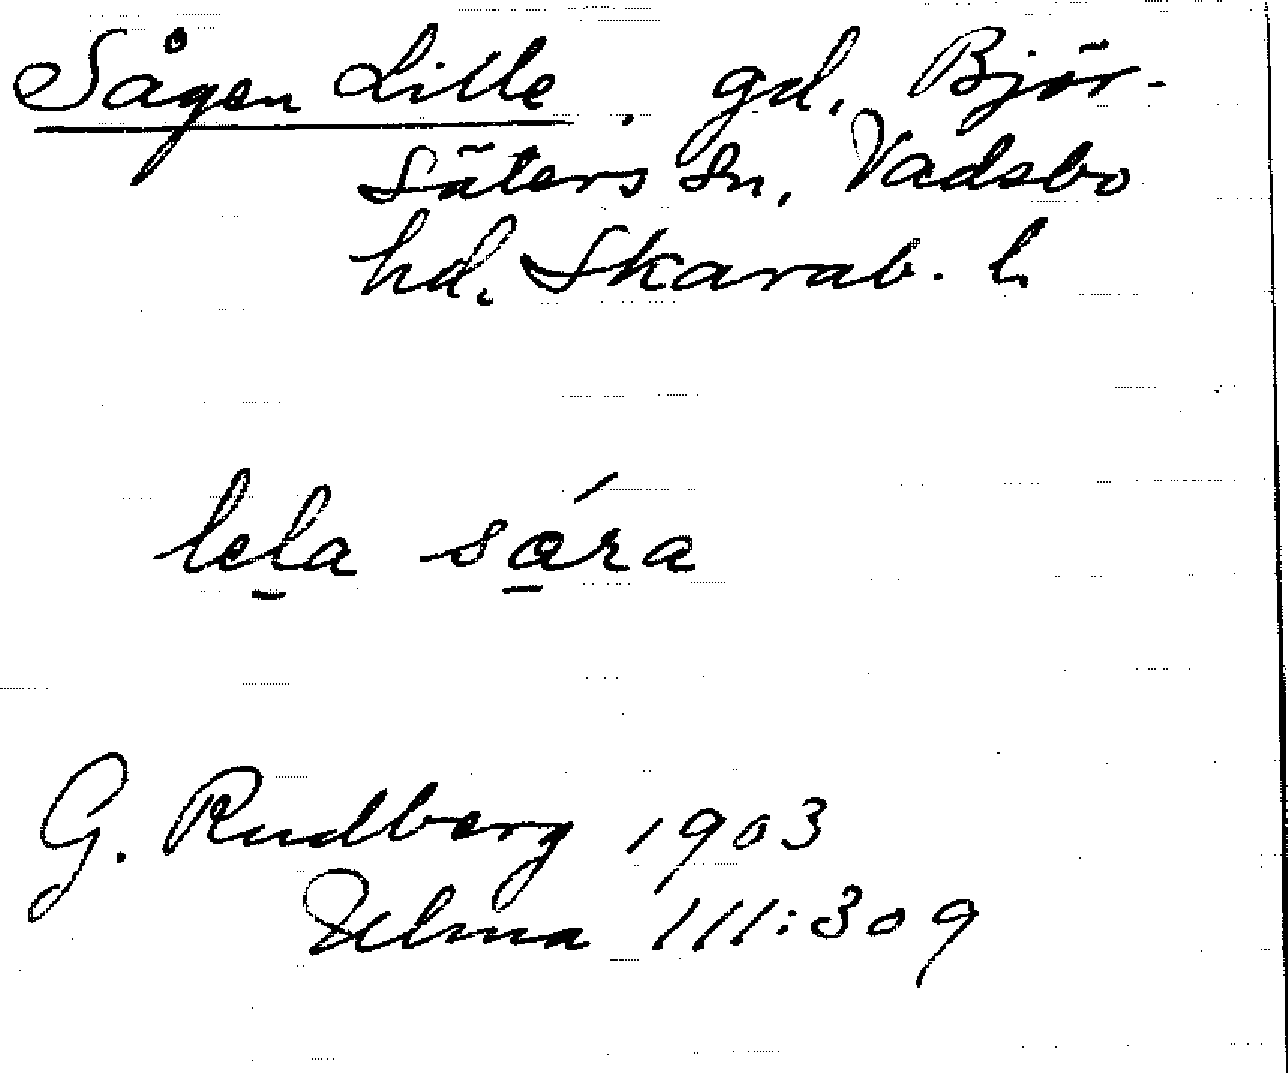 Sågen Lille, gd. Björ-
säters sn, Vadsbo
hd. Skarab. l.
lela sóra
G. Rudberg 1903
Ulma 111:309